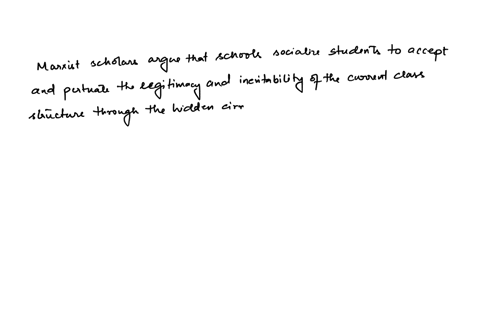 Marxist scholars argue that schools socialize students to accept
and pertuate the legitimacy and inevitability of the current class
structure through the hidden cirr